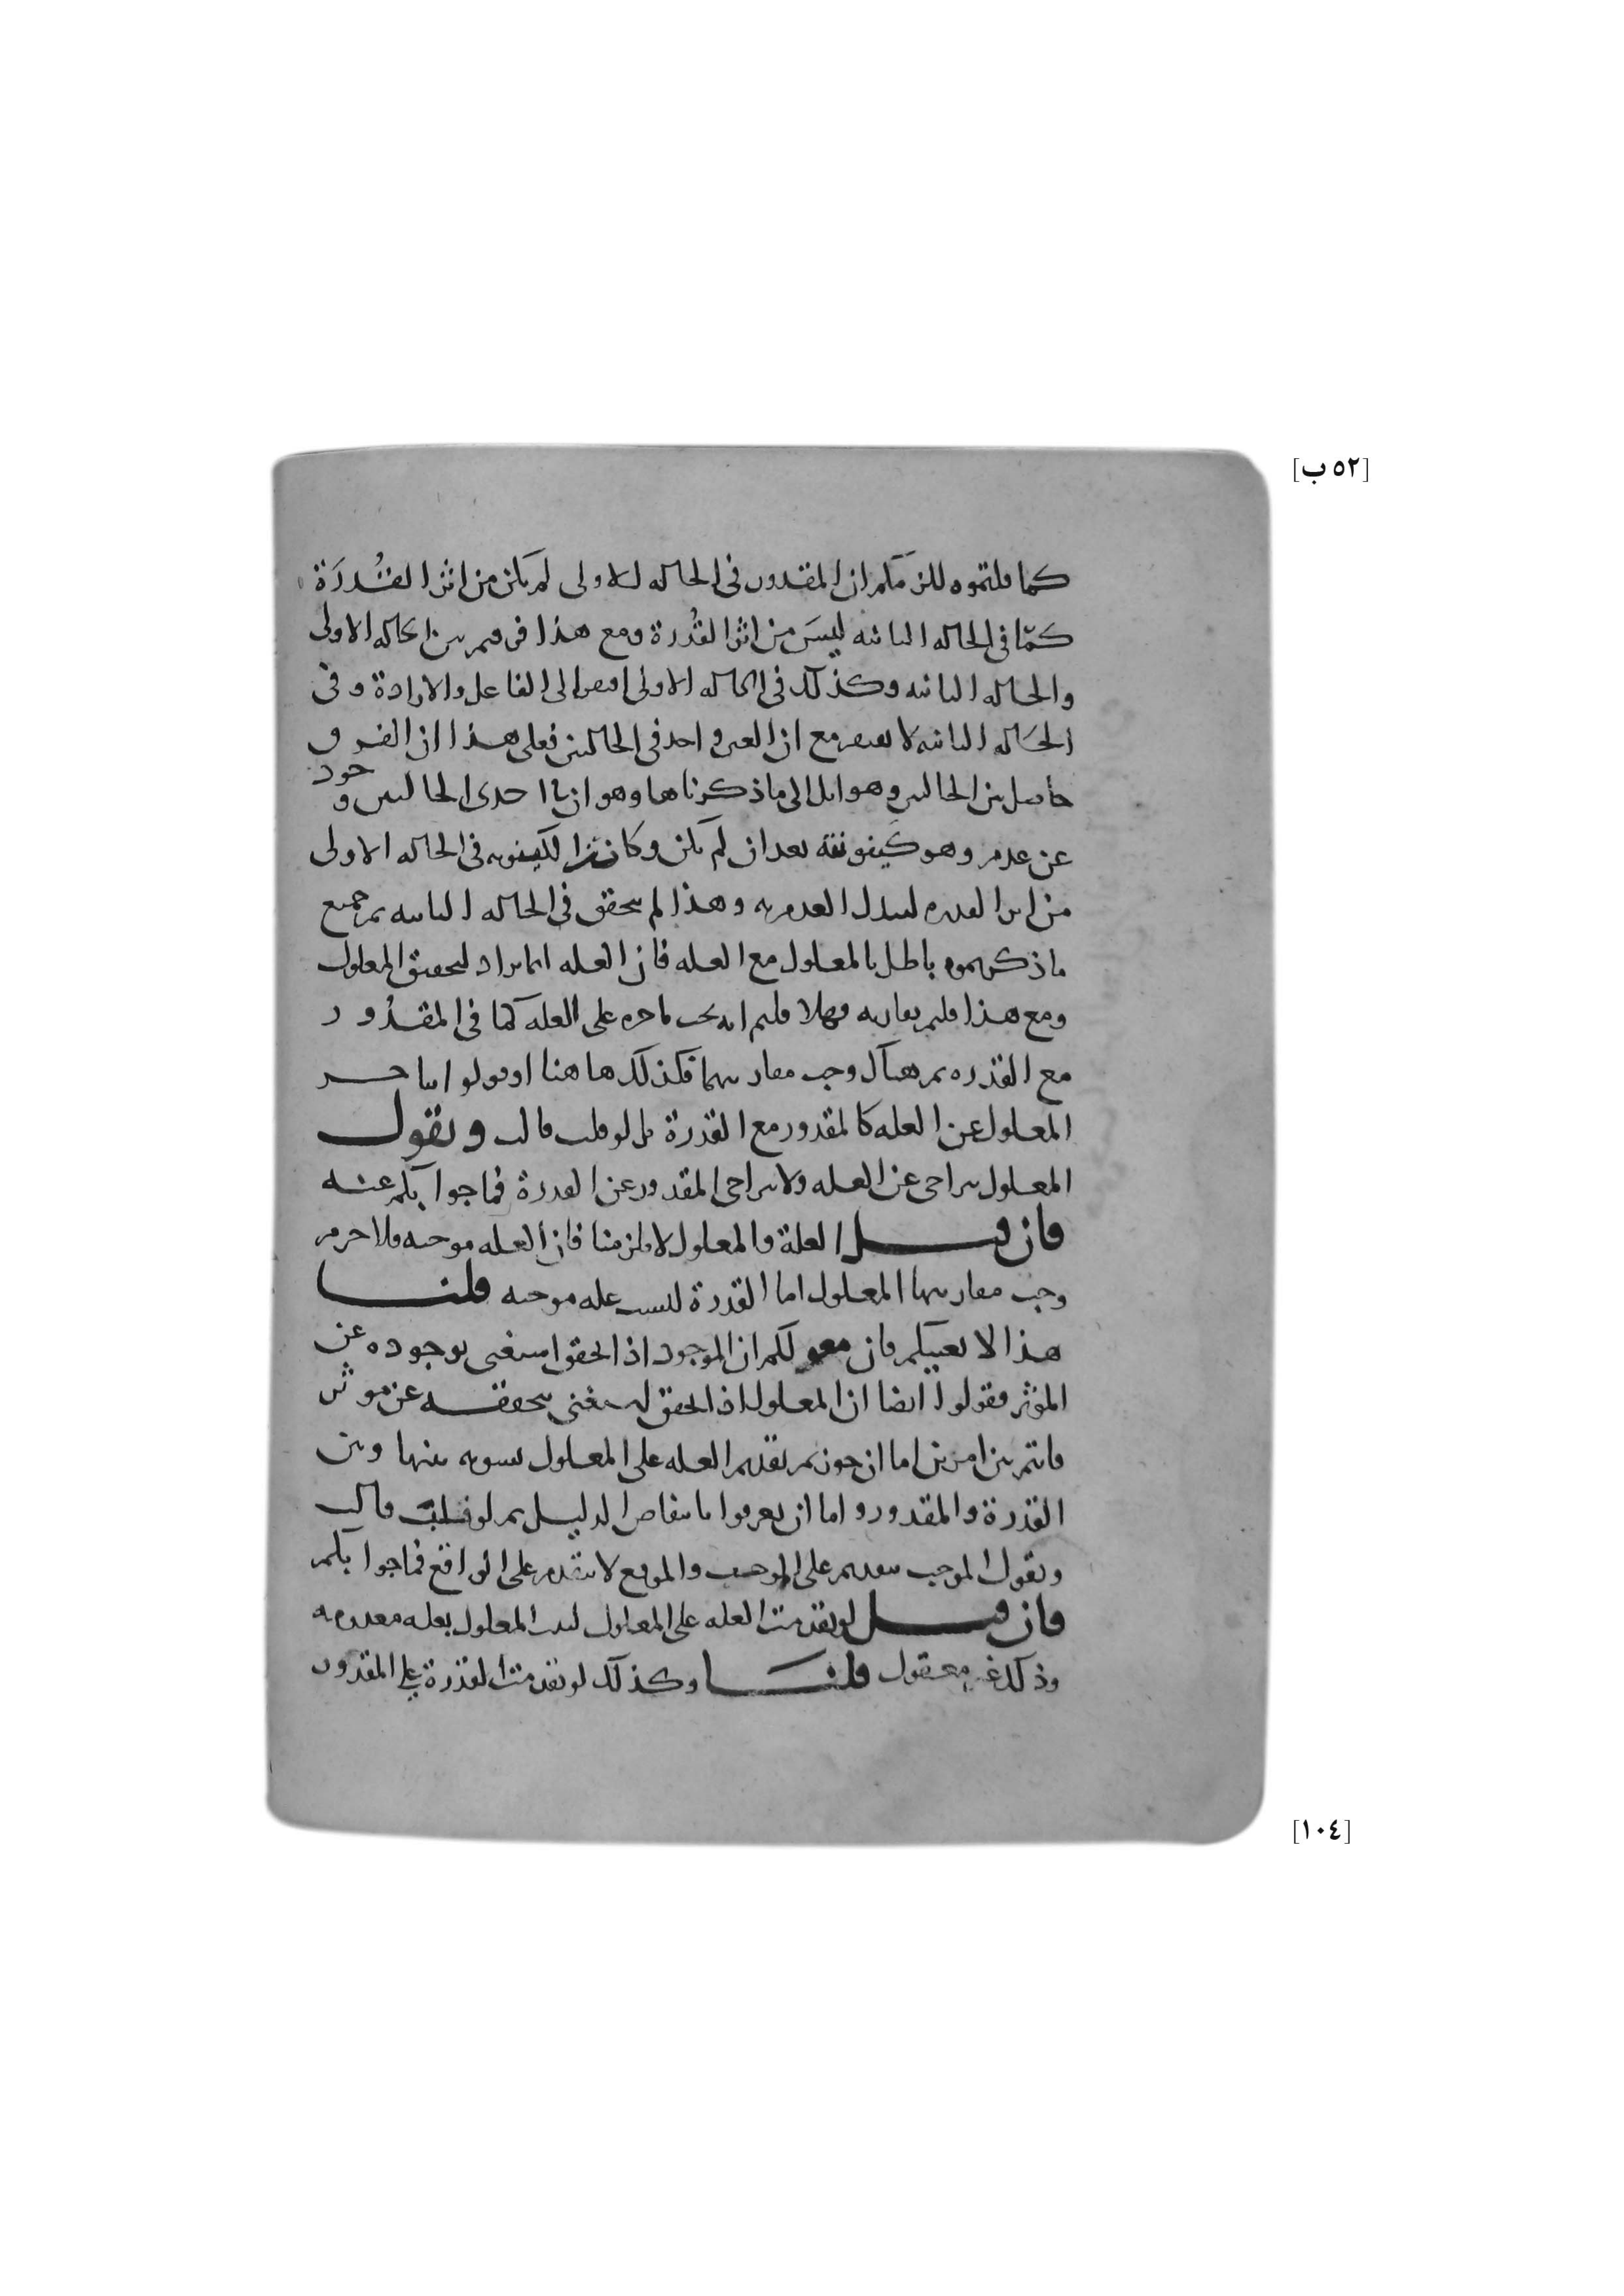 [٥٢ ب]
كما قلتموه للزمكم ان المقدور في الحاله الاولى لم يكن من اثر القُدرَة
كمّا في الحاله الثانيه ليسَ من اثر القُدرة ومع هذا فرقتم بين الحاله الاولى
والحاله الثانيه وكذلك في الحاله الاولى افتقر الى الفاعل والارادة وفي
الحَاله الثانيه لا يفتقر مع ان العين واحد في الحالتين فعلى هذا ان الفرق
حاصل بين الحالتين وهو ايل الى ما ذكرناه وهو ان في احدى الحالتين وجود
عن عدم وهو كينونته بعد ان لم يكن وكان الكينونه في الحاله الاولى
من اثر القدره لتبدل العدم به وهذا لم يتحقق في الحاله الثانيه ثم جميع
ما ذكرتموه باطل بالمعلول مع العله فان العله انما يراد لتحقيق المعلول
ومع هذا قلتم يقارنه فهلا قلتم انه يجب تاخره على العله كما في المقدُور
مع القدره ثم هناك وجب مقارنتهما فكذلك هاهنا او قولوا يتاخر
المعلول عن العله كالمقدور مع القدرة بل لو قلب قالب ونقول
المعلول يتراخى عن العله ولا يتراخى المقدور عن القدرة فما جوابكم عنه
فان قيل العلة والمعلول لا يلزمنا فان العله موجبه فلا جرم
وجب مقارنتها المعلول اما القدرة ليست عله موجبه قلنا
هذا لا يغنيكم فان معولكم ان الموجود اذا تحقق استغنى بوجوده عن
المؤثر فقولوا ايضا ان المعلول اذا تحقق استغنى بتحققه عن موثر
فانتم بين امرين اما ان جوزتم تقدم العله على المعلول تسويه بينها وبين
القدرة والمقدور واما ان تعرفوا بانتقاض الدليل ثم لو قلبَ قالب
ونقول الموجب يتقدم على الموجب والموقع لا يتقدم على الواقع فما جوابكم
فان قيل لو تقدمت العله على المعلول لثبت المعلول بعله معدومه
وذلك غير معقول قلنَا وكذلك لو تقدمت القدرة على المقدور
[١٠٤]